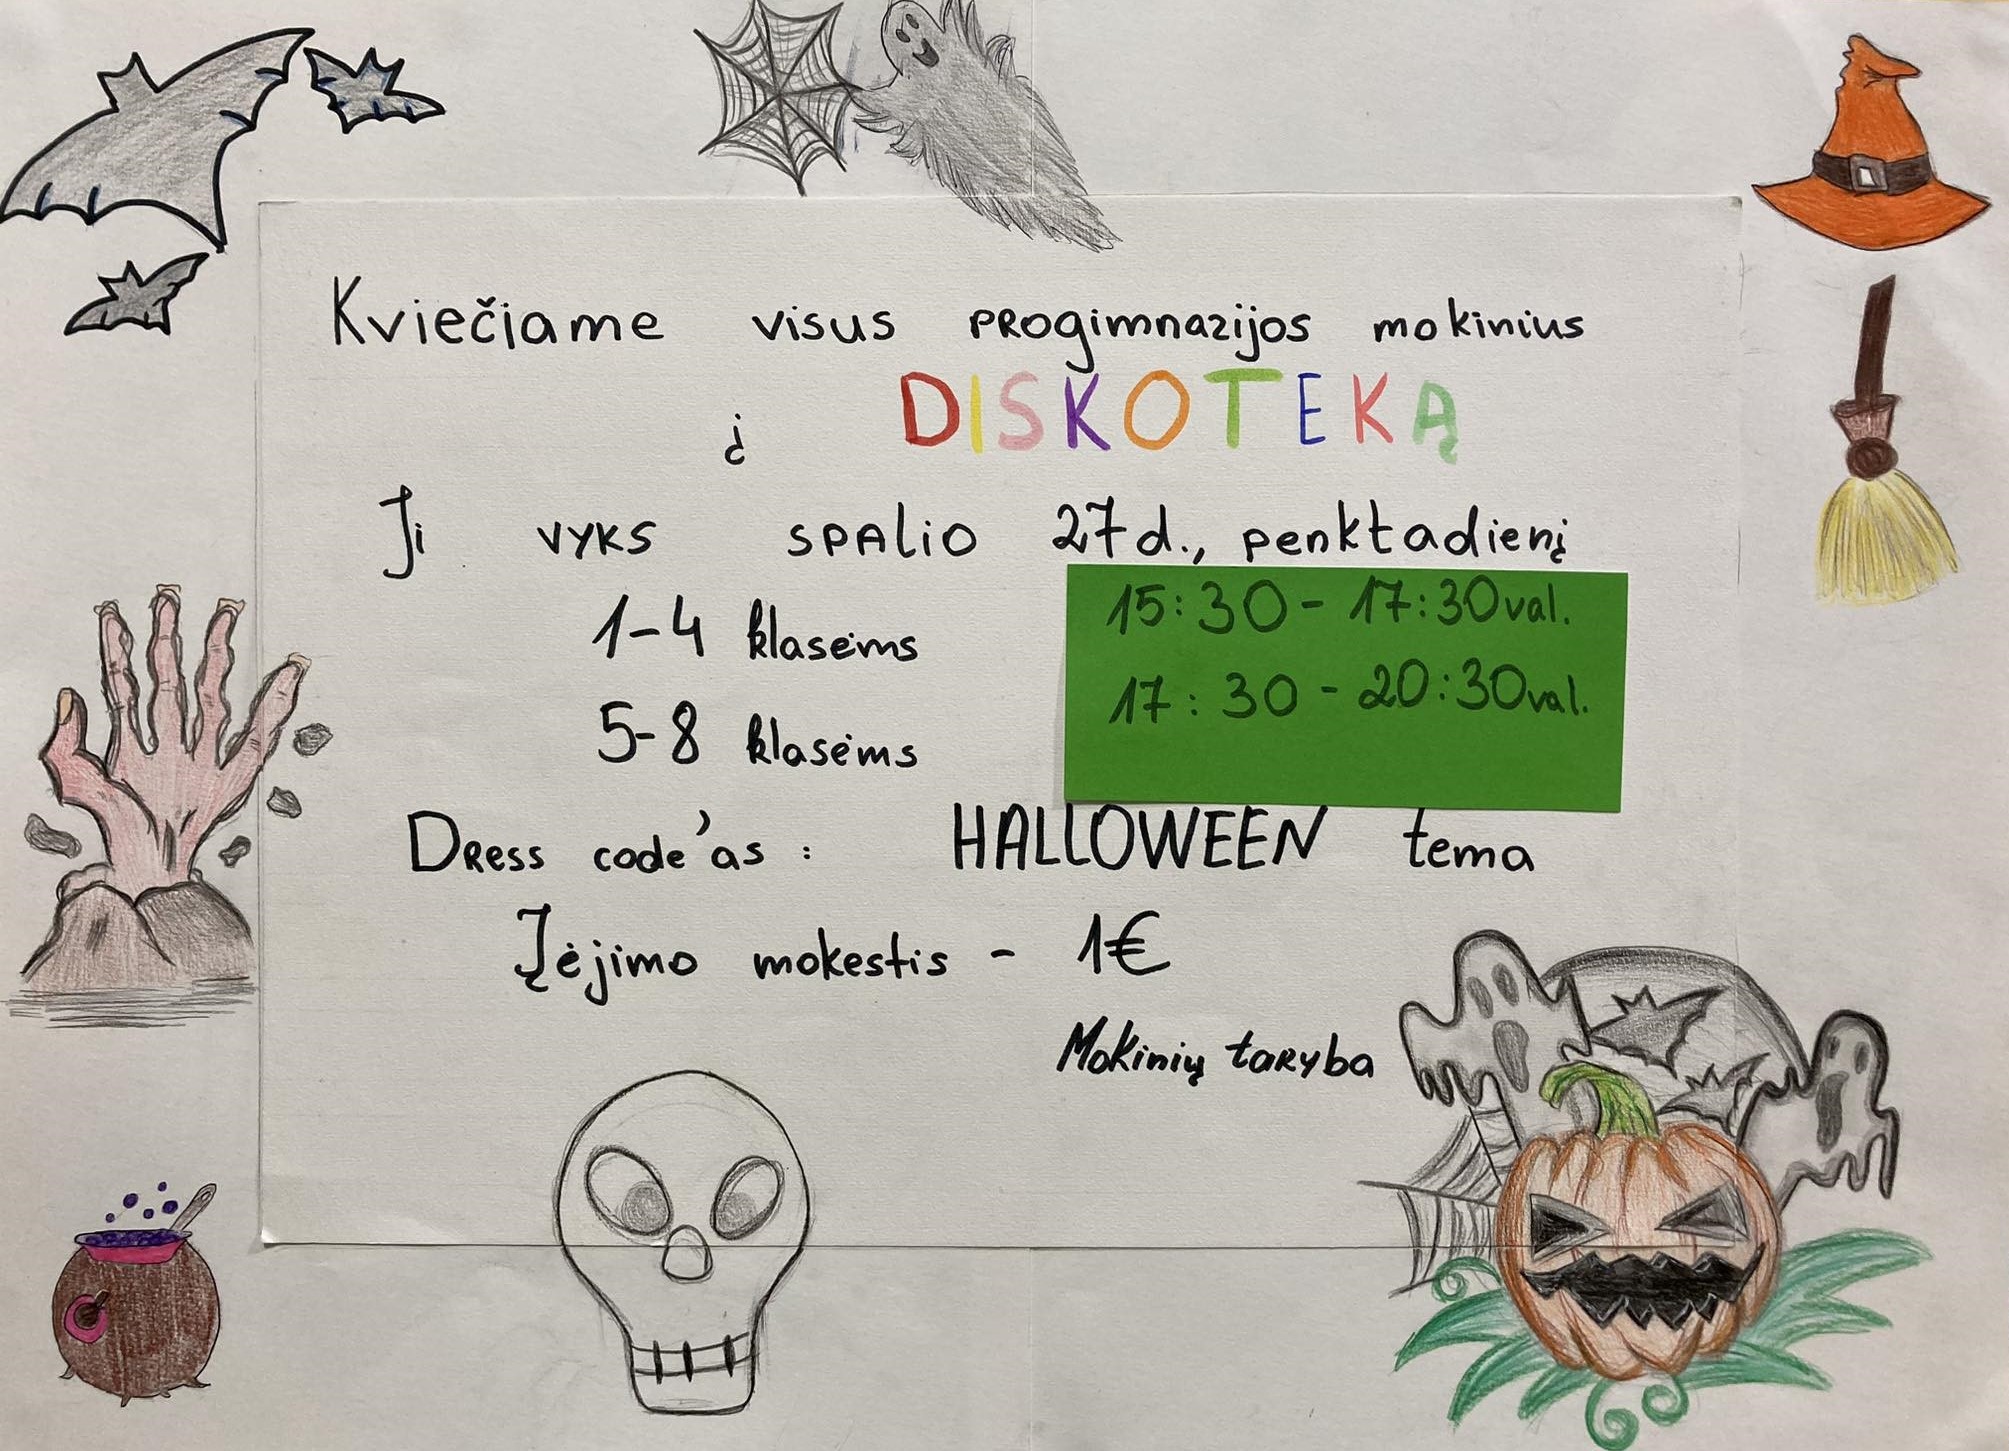 Kviečiame visus progimnazijos mokinius
į DISKOTEKĄ
Ji vyks spalio 27d., penktadienį
1-4 klasėms 15:30 - 17:30val.
5-8 klasėms 17:30 - 20:30val.
Dress code'as : HALLOWEEN tema
Įėjimo mokestis - 1€
Mokinių taryba